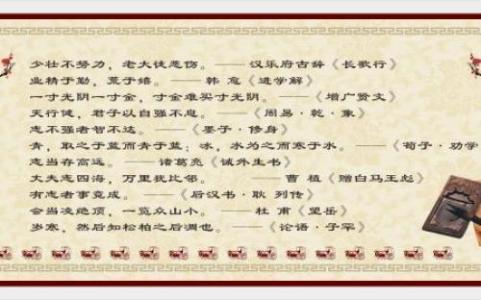 少壮不努力，老大徒悲伤。——汉乐府古辞《长歌行》
业精于勤，荒于嬉。——韩 愈《进学解》
一寸光阴一寸金，寸金难买寸光阴。——《增广贤文》
天行健，君子以自强不息。——《周易·乾·象》
志不强者智不达。——《墨子·修身》
青，取之于蓝而青于蓝；冰，水为之而寒于水。——《荀子·劝学
志当存高远。——诸葛亮《诫外生书》
丈夫志四海，万里我比邻。——曹 植《赠白马王彪》
有志者事竟成。——《后汉书·耿 列传》
会当凌绝顶，一览众山小。——杜 甫《望岳》
岁寒，然后知松柏之后凋也。——《论语·子罕》